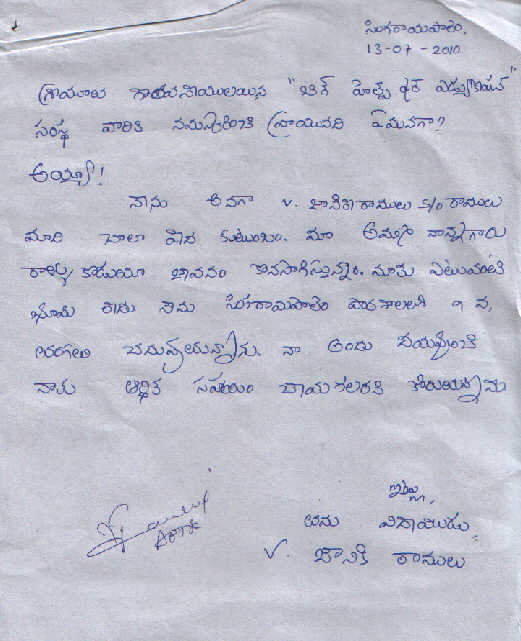 సింగరాయపాలెం,
13-07-2010
గ్రామూలు గౌరవనీయులయిన "బిగ్ హెల్ప్ ఫర్ ఎడ్యుకేషన్"
సంస్థ వారికి నమస్కరించి వ్రాయునది ఏమనగా?
అయ్యా!
నేను అనగా V. జానకి రాములు S/o రాములు
మాది చాలా పేద కుటుంబం. మా అమ్మ నాన్నగారు
కూలీ జీవనం కొనసాగిస్తున్నాం. మాకు ఎటువంటి
భూమి లేదు నేను సింగరాయపాలెం పాఠశాలలో 9 వ,
తరగతి చదువుతున్నాను. నా అందు దయవుంచి
నాకు ఆర్థిక సహాయం చేయగలరని కోరుచున్నాను
ఇట్లు,
తమ విధేయుడు,
V. జానకి రాములు